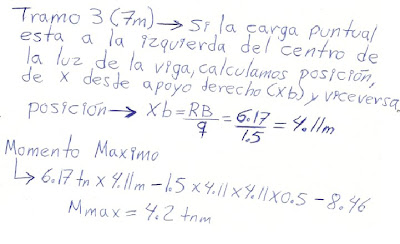 Tramo 3 (7m) → Si la carga puntual
esta a la izquierda del centro de
la luz de la viga, calculamos posición,
de x desde apoyo derecho (Xb) y viceversa.
posición → Xb = RB/q = 6.17/1.5 = 4.11m
Momento Maximo
↳ 6.17 tn x 4.11m - 1.5 x 4.11 x 4.11 x 0.5 - 8.46
Mmax = 4.2 tnm